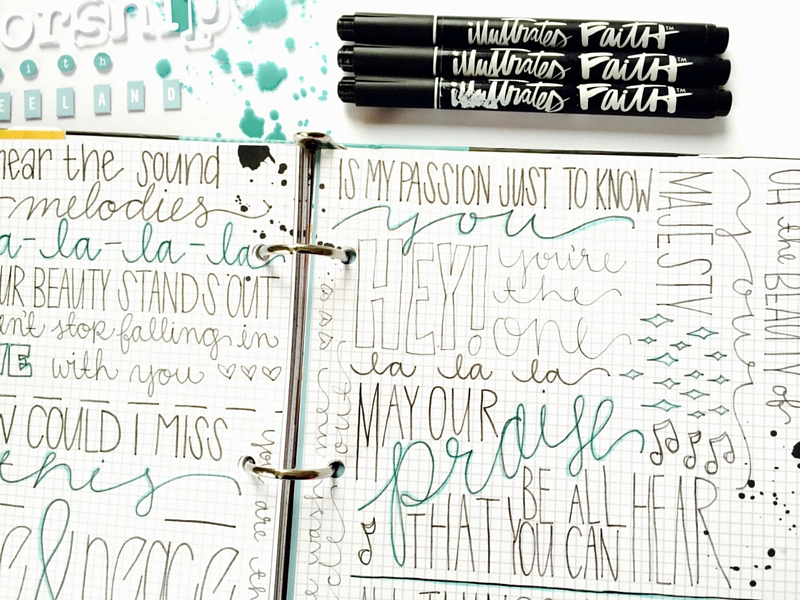 orship
with
ELAND
illustrated FAITH™
illustrated FAITH™
illustrated FAITH™
hear the sound
melodies
a-la-la-la
UR BEAUTY STANDS OUT
n't stop falling in
VE with you
W COULD I MISS
this
IS MY PASSION JUST TO KNOW
you
HEY! you're
the
one
la la la
MAY OUR
praise
BE ALL
THAT YOU CAN HEAR
MAJESTY
your
OH the BEAUTY of
you are th
ALL THINGS